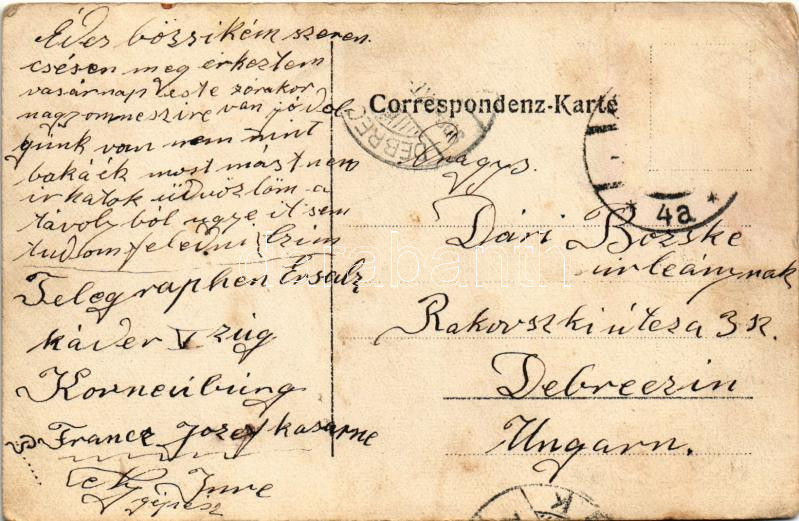 Édes bözsikém szeren
csésen meg érkeztem
vasárnap este zórakor
nagyon meszire van jó dol
günk van nem mint
bakáék most mást nem
irhatok üdvözlöm a
távolyból ugye it sem
tudom feledni Czim
Telegraphen Ersatz
káder V zúg
Korneúbúrg
France Jozef kasarne
Imre
gépész
Correspondenz-Karte
DEBREC
4a
Nagys.
Dári Bözske
úrleánynak
Rakovszki útcza 3 sz.
Debreczin
Ungarn.
darabanth